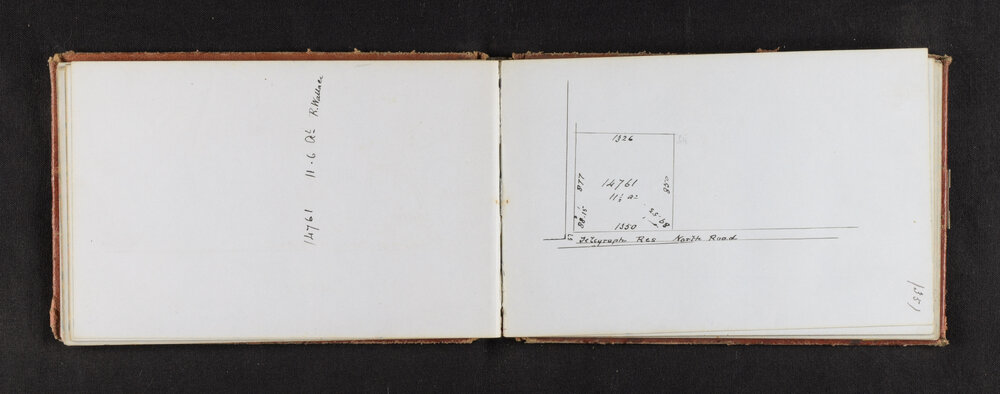 14761 11.6 ac R. Wallace
1326
877
14761
850
11½ ac
88.15
89.25
1350
Telegraph Res North Road
135)